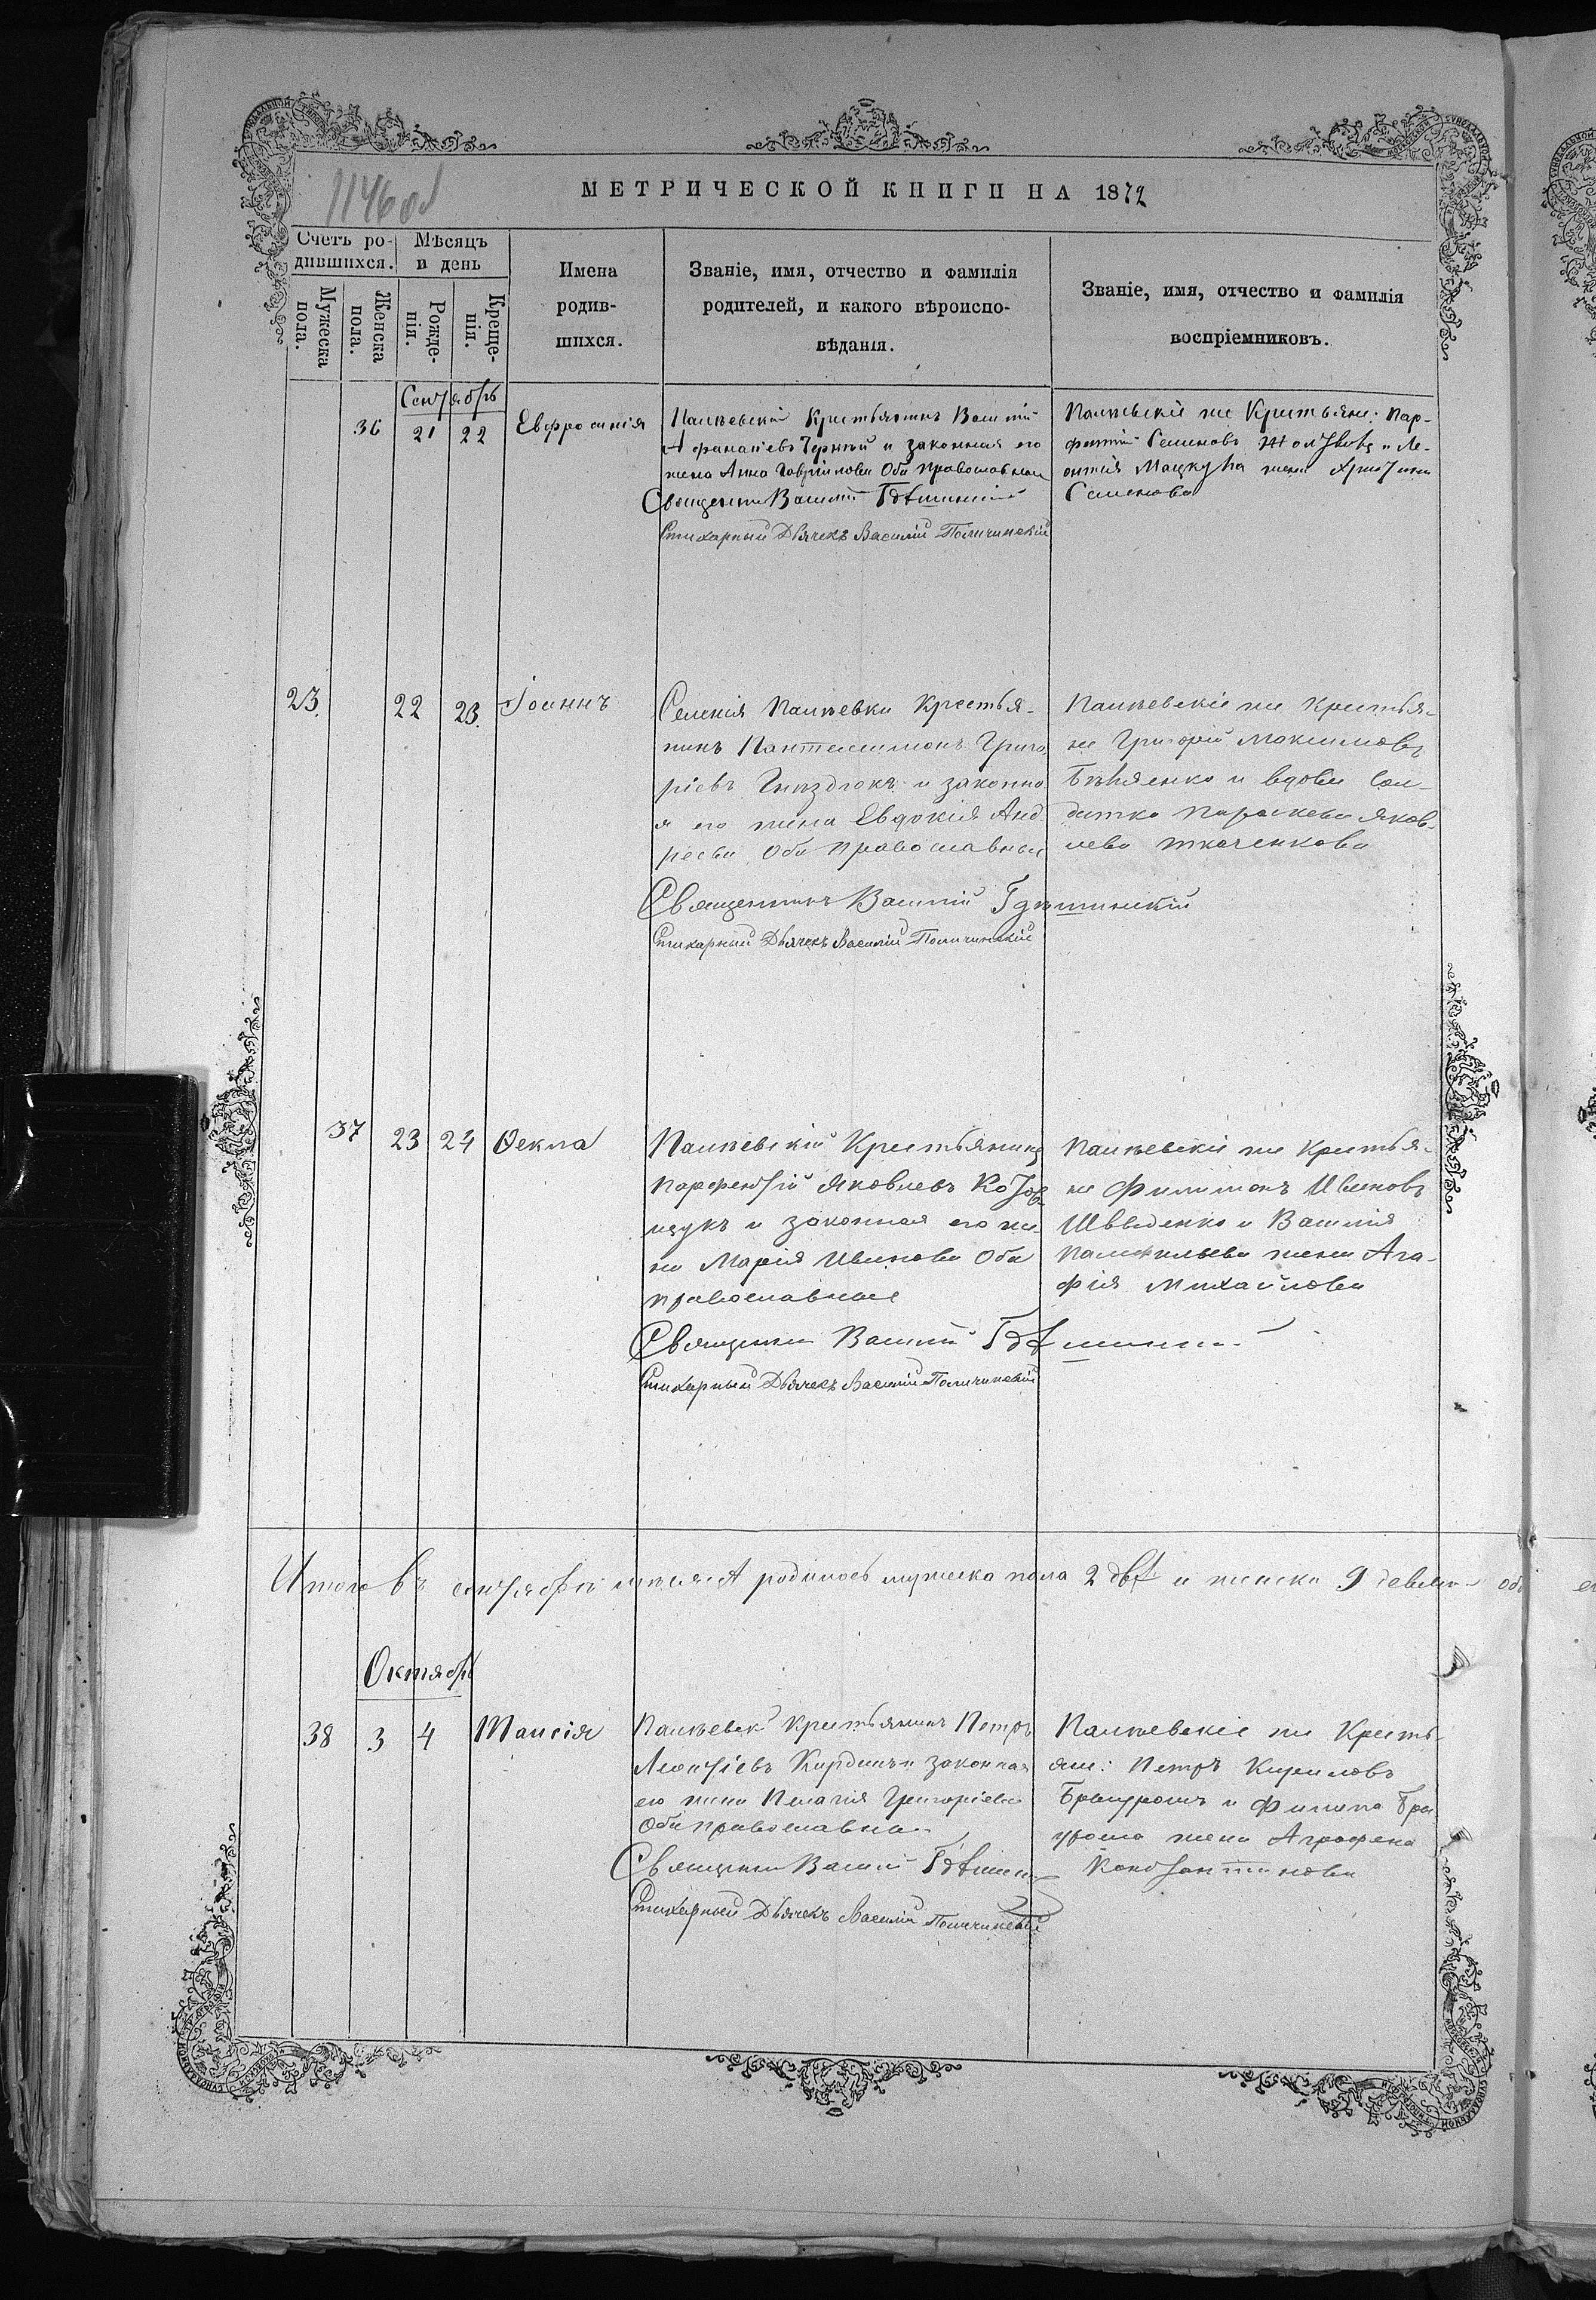 1146 об
МЕТРИЧЕСКОЙ КНИГИ НА 1872
Счетъ ро-
дившихся.
Мѣсяцъ
и день
Мужеска
пола.
Женска
пола.
Рожде-
нія.
Креще-
нія.
Имена
родив-
шихся.
Званіе, имя, отчество и фамилія
родителей, и какого вѣроиспо-
вѣданія.
Званіе, имя, отчество и фамилія
воспріемниковъ.
Сентябрь
36
21
22
Евфросинія
Палѣевскій Крестьянинъ Василій
Афанасіевъ Черный и законная его
жена Анна Гавріилова Оба православные
Священникъ Василій
Стихарный Дьячекъ Василій
Палѣевскіе же Крестьяне: Пар-
фентій Семеновъ и Ле-
онтія жена Христина
Семенова
23.
22
23.
Іоаннъ
Селенія Палѣевки Крестья-
нинъ Пантелимонъ Григо-
ріевъ Гнѣздюкъ и законна
я его жена Евдокія Анд
реева Оба православные
Священникъ Василій
Стихарный Дьячекъ Василій
Палѣевскіе же Крестья-
не Григорій Максимовъ
и вдова Сол-
датка Параскева Яков-
лева Ткаченкова
37
23
24
Ѳекла
Палѣевскій Крестьянинъ
Парфентій Яковлевъ
и законная его же-
на Марія Иванова Оба
православные
Священникъ Василій
Стихарный Дьячекъ Василій
Палѣевскіе же Крестья-
не Филимонъ Ивановъ
и Василія
жена Ага-
фія Михайлова
Итого въ сентябрѣ мѣсяцѣ родилось мужеска пола 2 два и женска 9 девять об
Октябрь
38
3
4
Таисія
Палѣевскі Крестьянинъ Петръ
Леонтіевъ и законная
его жена Пелагія Григоріева
Оба православные
Священникъ Василій
Стихарный Дьячекъ Василій
Палѣевскіе же Кресть-
яне: Петръ Кириловъ
и Филипа
жена Аграфена
Константинова